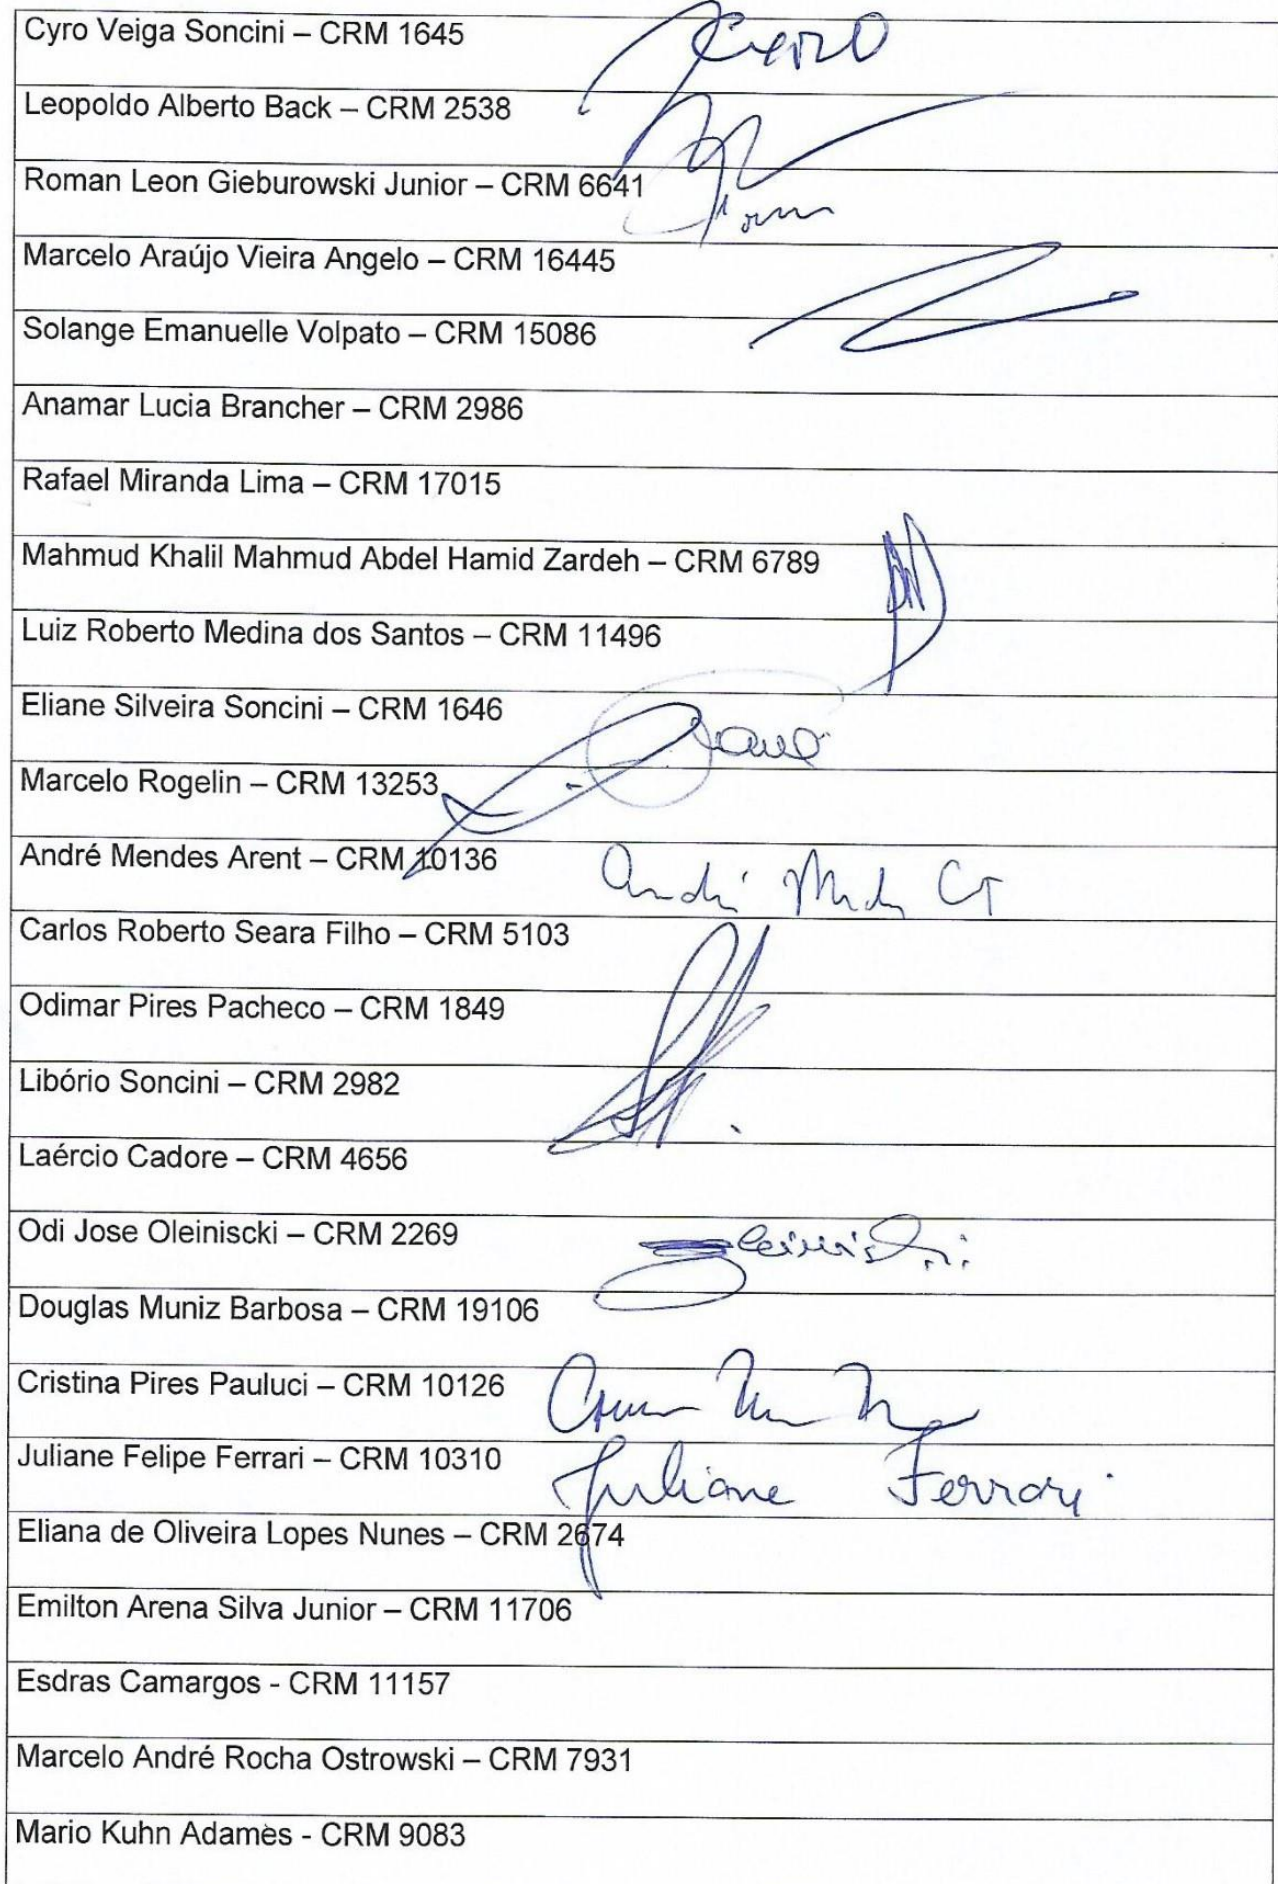 Cyro Veiga Soncini – CRM 1645 Cyro
Leopoldo Alberto Back – CRM 2538
Roman Leon Gieburowski Junior – CRM 6641
Marcelo Araújo Vieira Angelo – CRM 16445
Solange Emanuelle Volpato – CRM 15086
Anamar Lucia Brancher – CRM 2986
Rafael Miranda Lima – CRM 17015
Mahmud Khalil Mahmud Abdel Hamid Zardeh – CRM 6789
Luiz Roberto Medina dos Santos – CRM 11496
Eliane Silveira Soncini – CRM 1646
Marcelo Rogelin – CRM 13253
André Mendes Arent – CRM 10136 André
Carlos Roberto Seara Filho – CRM 5103
Odimar Pires Pacheco – CRM 1849
Libório Soncini – CRM 2982
Laércio Cadore – CRM 4656
Odi Jose Oleiniscki – CRM 2269
Douglas Muniz Barbosa – CRM 19106
Cristina Pires Pauluci – CRM 10126
Juliane Felipe Ferrari – CRM 10310 Juliane Ferrari
Eliana de Oliveira Lopes Nunes – CRM 2674
Emilton Arena Silva Junior – CRM 11706
Esdras Camargos - CRM 11157
Marcelo André Rocha Ostrowski – CRM 7931
Mario Kuhn Adames - CRM 9083